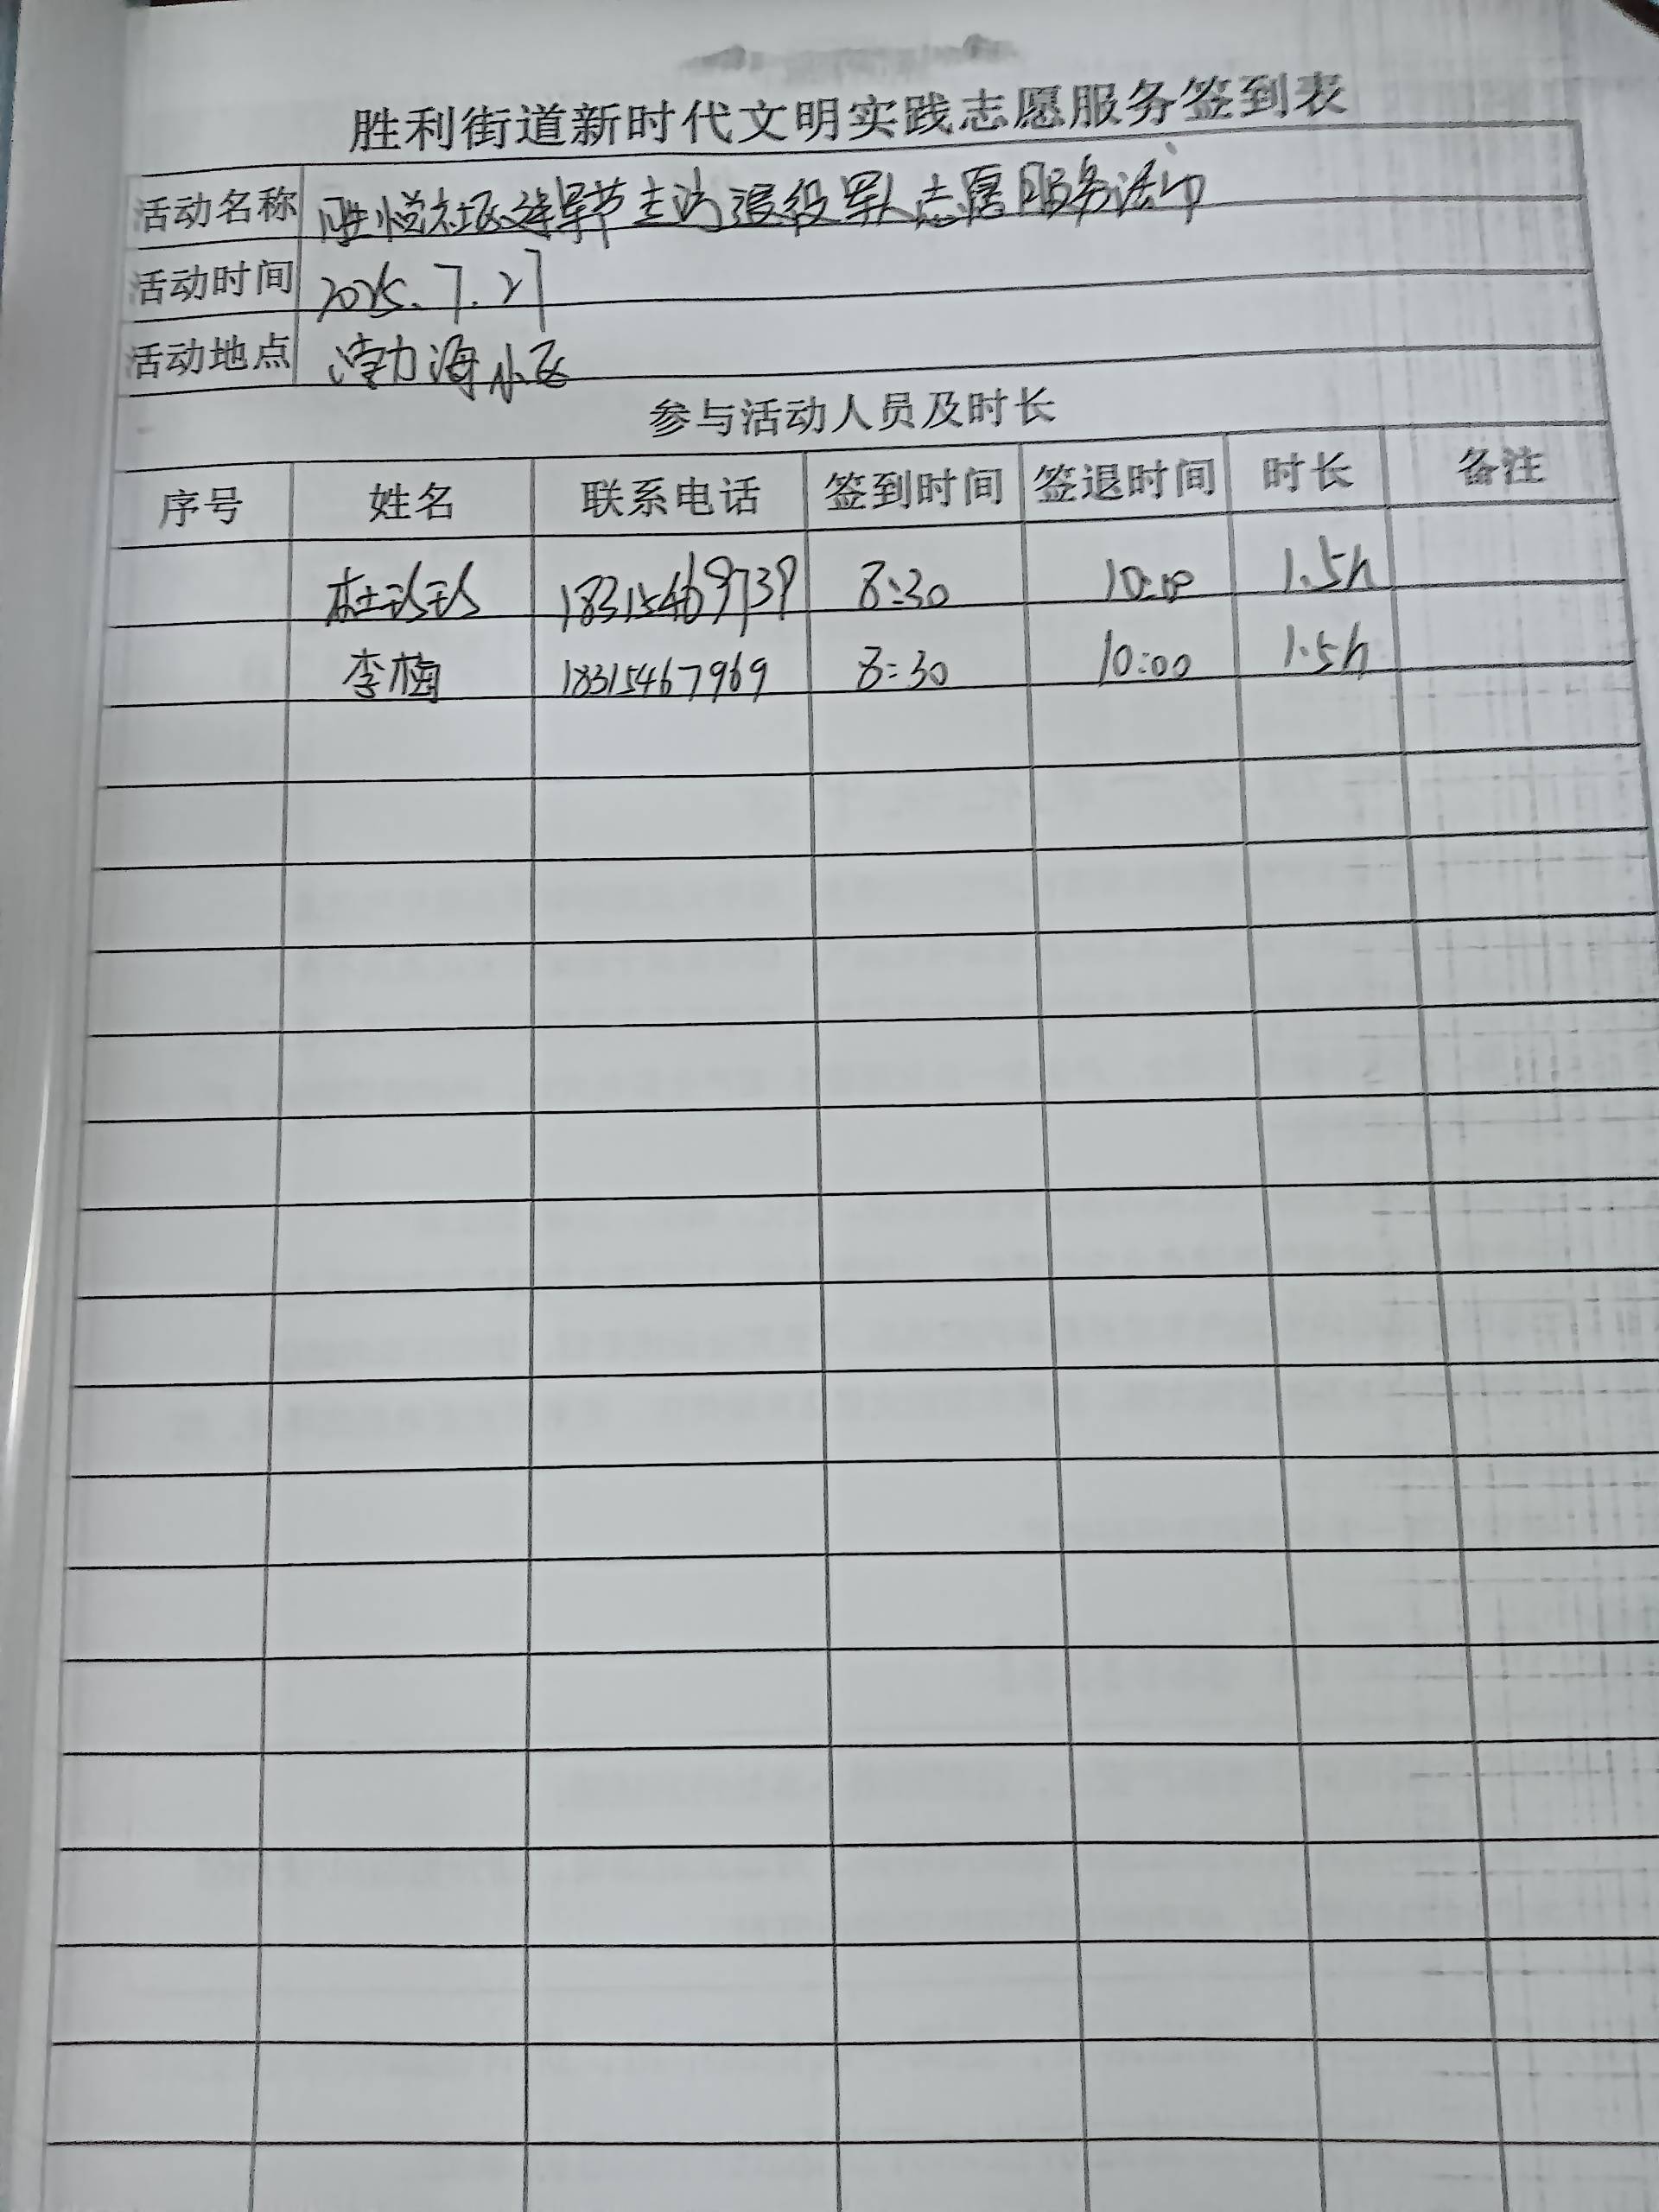 胜利街道新时代文明实践志愿服务签到表
活动名称 胜悦社区建军节主访退役军人志愿服务活动
活动时间 2025.7.27
活动地点 渤海小区
参与活动人员及时长
序号 姓名 联系电话 签到时间 签退时间 时长 备注
杜珍珍 18315469739 8:30 10:00 1.5h
李梅 18315467969 8:30 10:00 1.5h